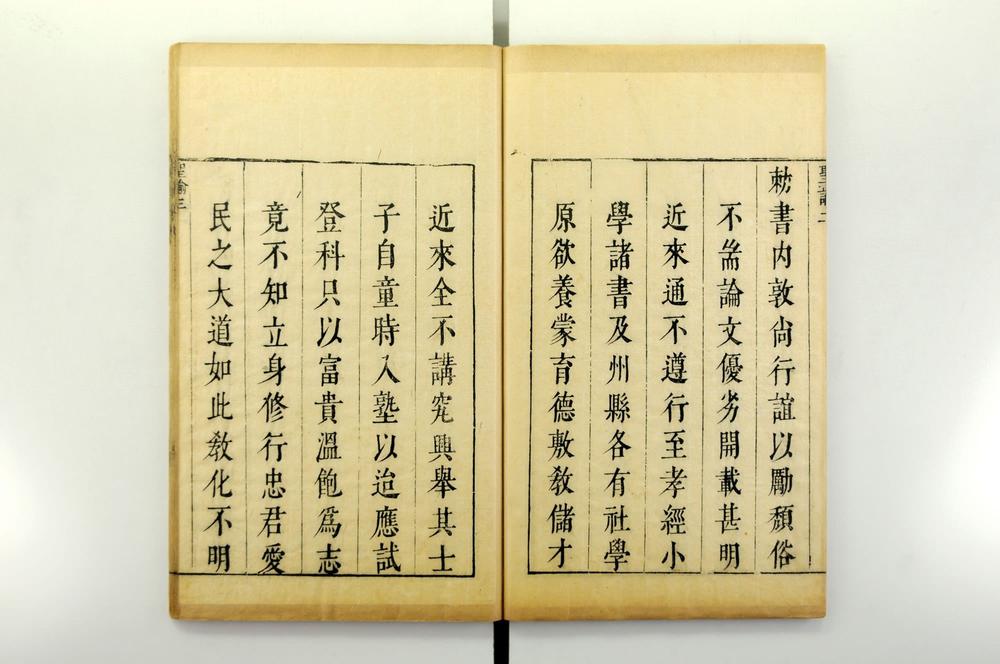 聖諭二
勅書内敦尚行誼以勵頹俗
不耑論文優劣開載甚明
近來通不遵行至孝經小
學諸書及州縣各有社學
原欲養蒙育德敷敎儲才
近來全不講究興舉其士
子自童時入塾以迨應試
登科只以富貴溫飽爲志
竟不知立身修行忠君愛
民之大道如此敎化不明
聖諭三